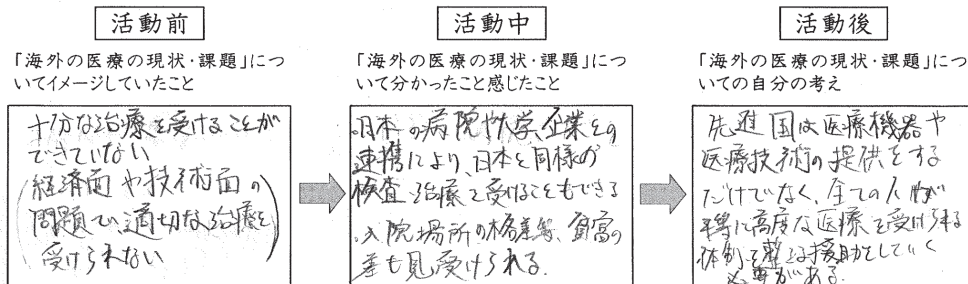 活動前
「海外の医療の現状・課題」につ
いてイメージしていたこと
十分な治療を受けることが
できていない
(経済面や技術面の
問題で、適切な治療を
受けられない)
活動中
「海外の医療の現状・課題」につ
いて分かったこと感じたこと
・日本の病院や大学、企業との
連携により、日本と同様の
検査、治療を受けることもできる
・入院場所の格差等、貧富の
差も見受けられる。
活動後
「海外の医療の現状・課題」につ
いての自分の考え
先進国は医療機器や
医療技術の提供をする
だけでなく、全ての人が
平等に高度な医療を受けられる
体制を整える援助をしていく
必要がある。